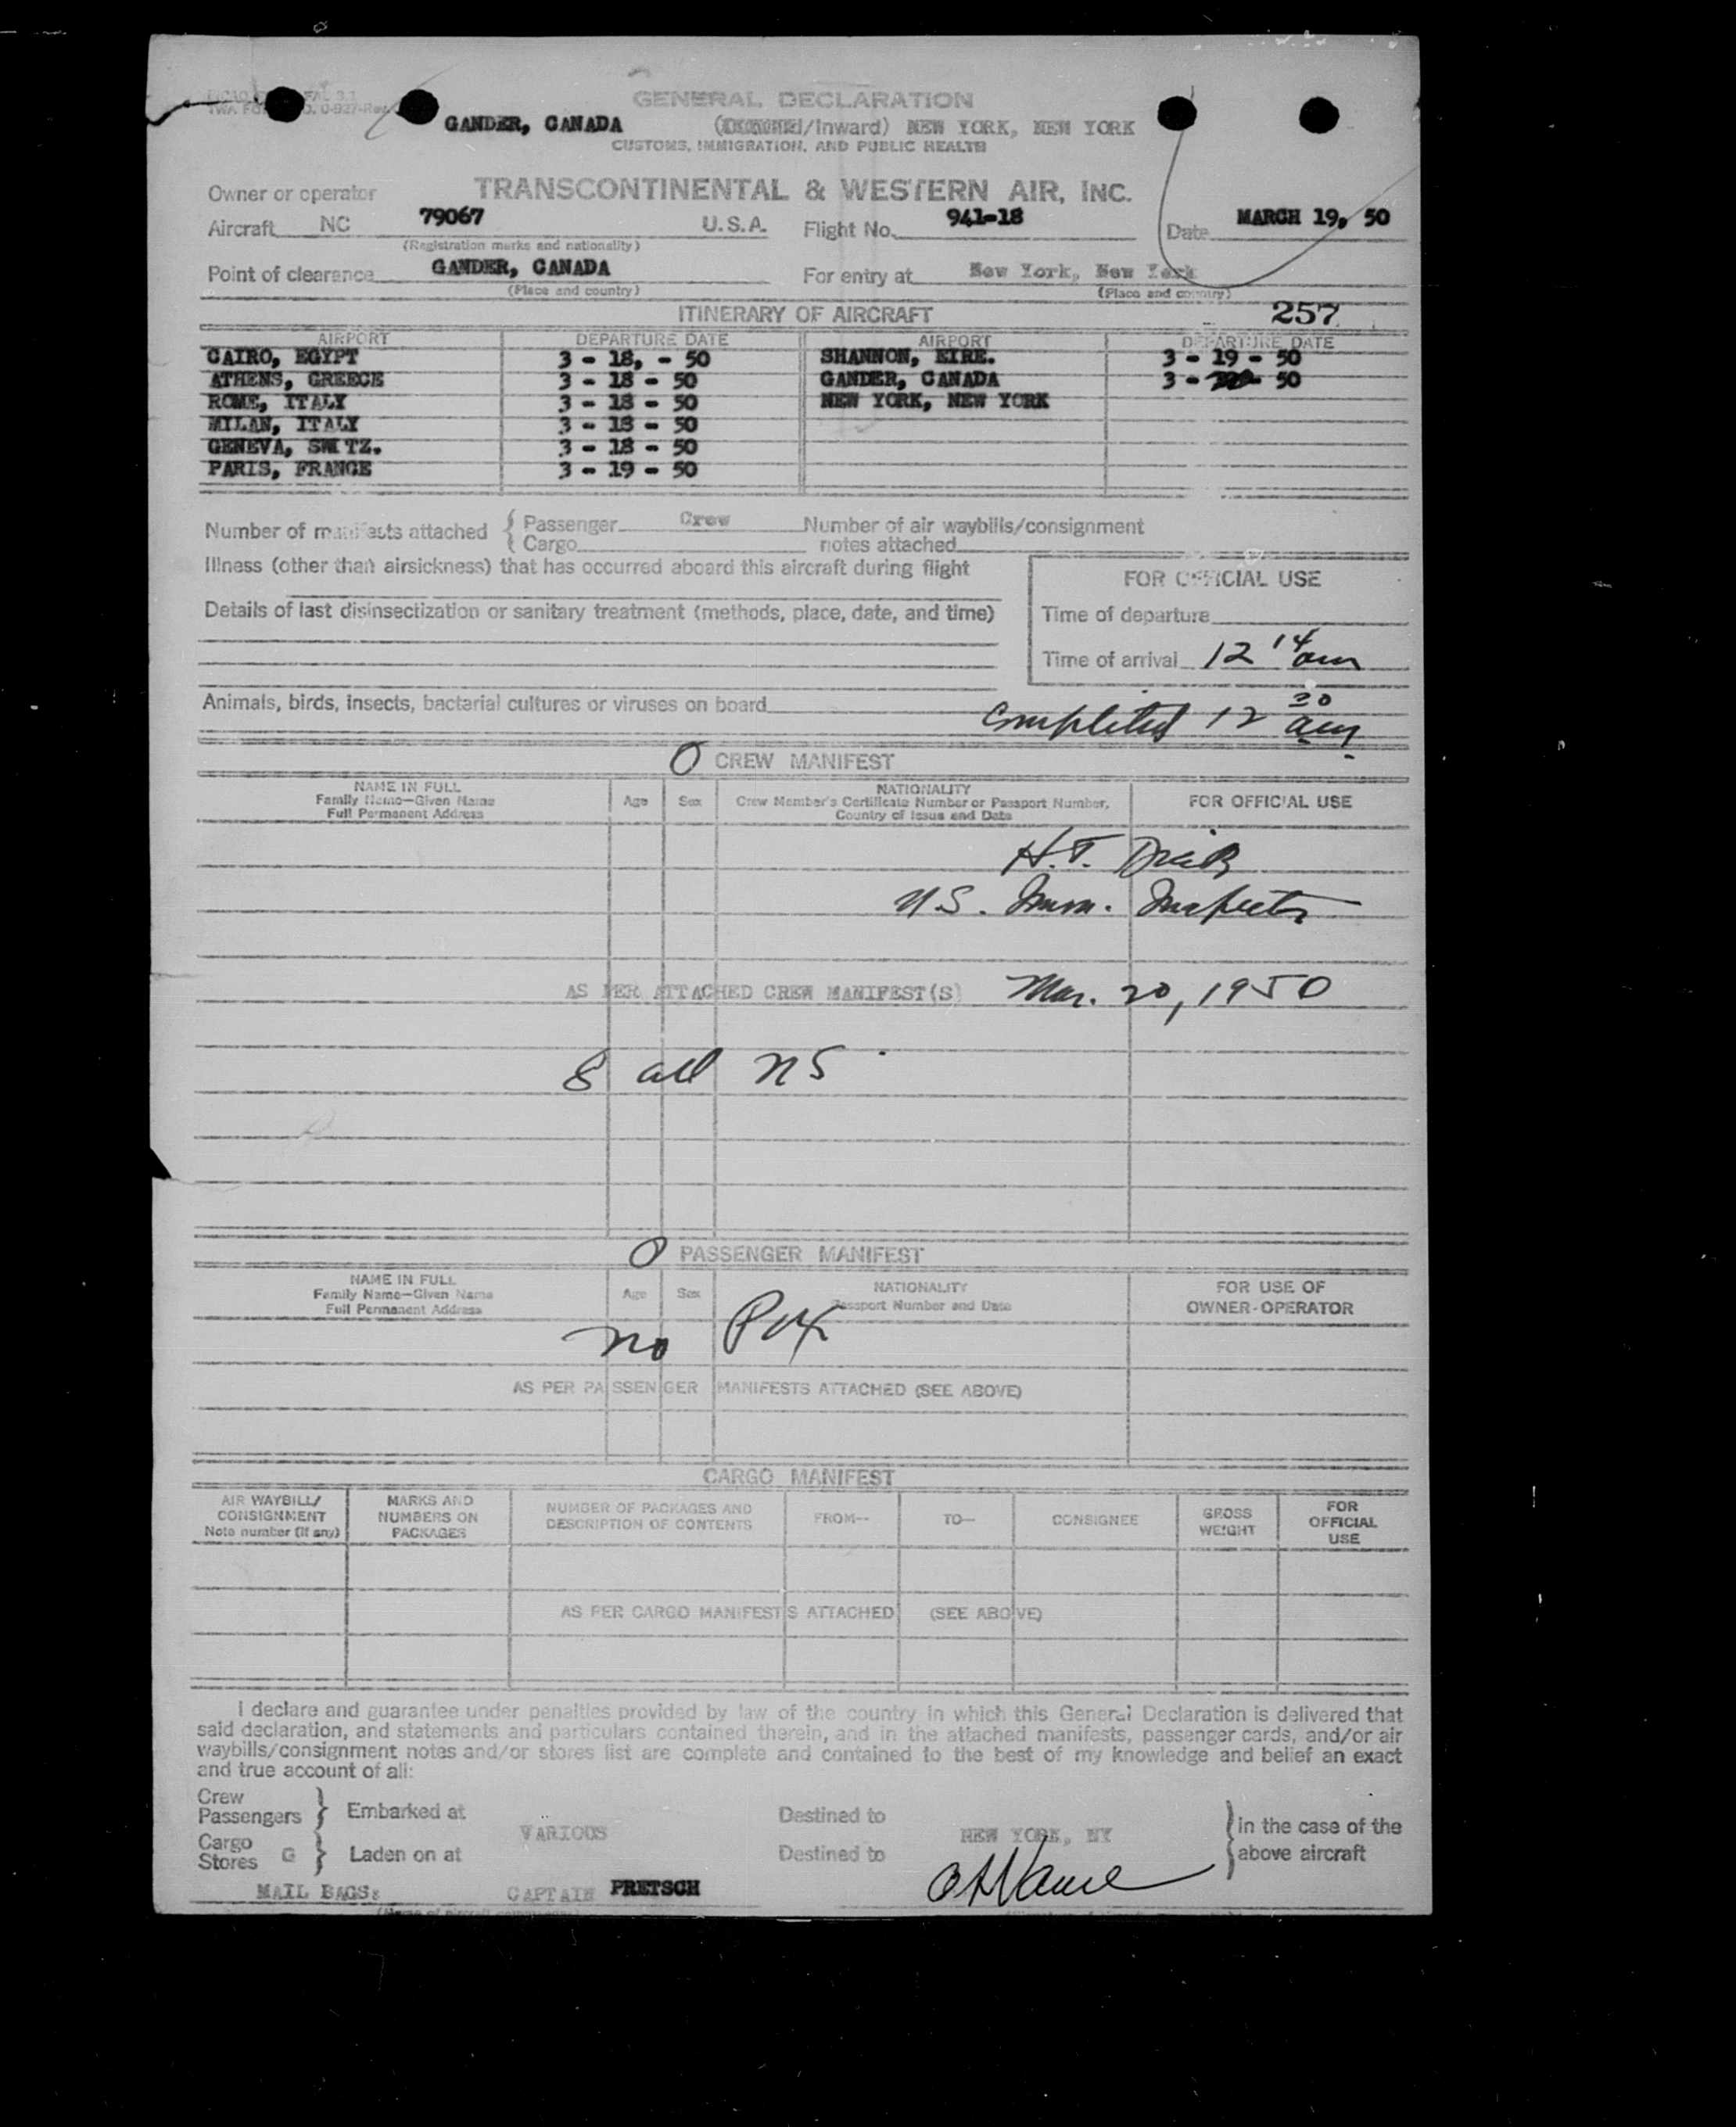 GENERAL DECLARATION
GANDER, CANADA (/Inward) NEW YORK, NEW YORK
CUSTOMS, IMMIGRATION, AND PUBLIC HEALTH
Owner or operator TRANSCONTINENTAL & WESTERN AIR, INC.
Aircraft NC 79067 U.S.A. Flight No. 941-18 Date MARCH 19, 50
(Registration marks and nationality)
Point of clearance GANDER, CANADA For entry at New York, New York
(Place and country) (Place and country)
ITINERARY OF AIRCRAFT 257
AIRPORT DEPARTURE DATE AIRPORT DEPARTURE DATE
CAIRO, EGYPT 3 - 18, - 50 SHANNON, EIRE. 3 - 19 - 50
ATHENS, GREECE 3 - 18 - 50 GANDER, CANADA 3 - - 50
ROME, ITALY 3 - 18 - 50 NEW YORK, NEW YORK
MILAN, ITALY 3 - 18 - 50
GENEVA, SWITZ. 3 - 18 - 50
PARIS, FRANCE 3 - 19 - 50
Number of manifests attached { Passenger Crew Number of air waybills/consignment
Cargo notes attached
Illness (other than airsickness) that has occurred aboard this aircraft during flight
FOR OFFICIAL USE
Details of last disinsectization or sanitary treatment (methods, place, date, and time)
Time of departure
Time of arrival 12 14 am
Animals, birds, insects, bacterial cultures or viruses on board
Completed 12 30 am
O CREW MANIFEST
NAME IN FULL
Family Name—Given Name
Full Permanent Address
Age Sex
NATIONALITY
Crew Member's Certificate Number or Passport Number,
Country of Issue and Date
FOR OFFICIAL USE
H.T.
U.S. Imm. Inspector
AS PER ATTACHED CREW MANIFEST(S) Mar. 20, 1950
8 all US
O PASSENGER MANIFEST
NAME IN FULL
Family Name—Given Name
Full Permanent Address
Age Sex
NATIONALITY
Passport Number and Date
FOR USE OF
OWNER-OPERATOR
no Pax
AS PER PASSENGER MANIFESTS ATTACHED (SEE ABOVE)
CARGO MANIFEST
AIR WAYBILL/
CONSIGNMENT
Note number (if any)
MARKS AND
NUMBERS ON
PACKAGES
NUMBER OF PACKAGES AND
DESCRIPTION OF CONTENTS
FROM— TO— CONSIGNEE
GROSS
WEIGHT
FOR
OFFICIAL
USE
AS PER CARGO MANIFESTS ATTACHED (SEE ABOVE)
I declare and guarantee under penalties provided by law of the country in which this General Declaration is delivered that
said declaration, and statements and particulars contained therein, and in the attached manifests, passenger cards, and/or air
waybills/consignment notes and/or stores list are complete and contained to the best of my knowledge and belief an exact
and true account of all:
Crew
Passengers } Embarked at Destined to
VARIOUS NEW YORK, NY
} in the case of the
above aircraft
Cargo
Stores G } Laden on at Destined to
MAIL BAGS: CAPTAIN PRETSCH